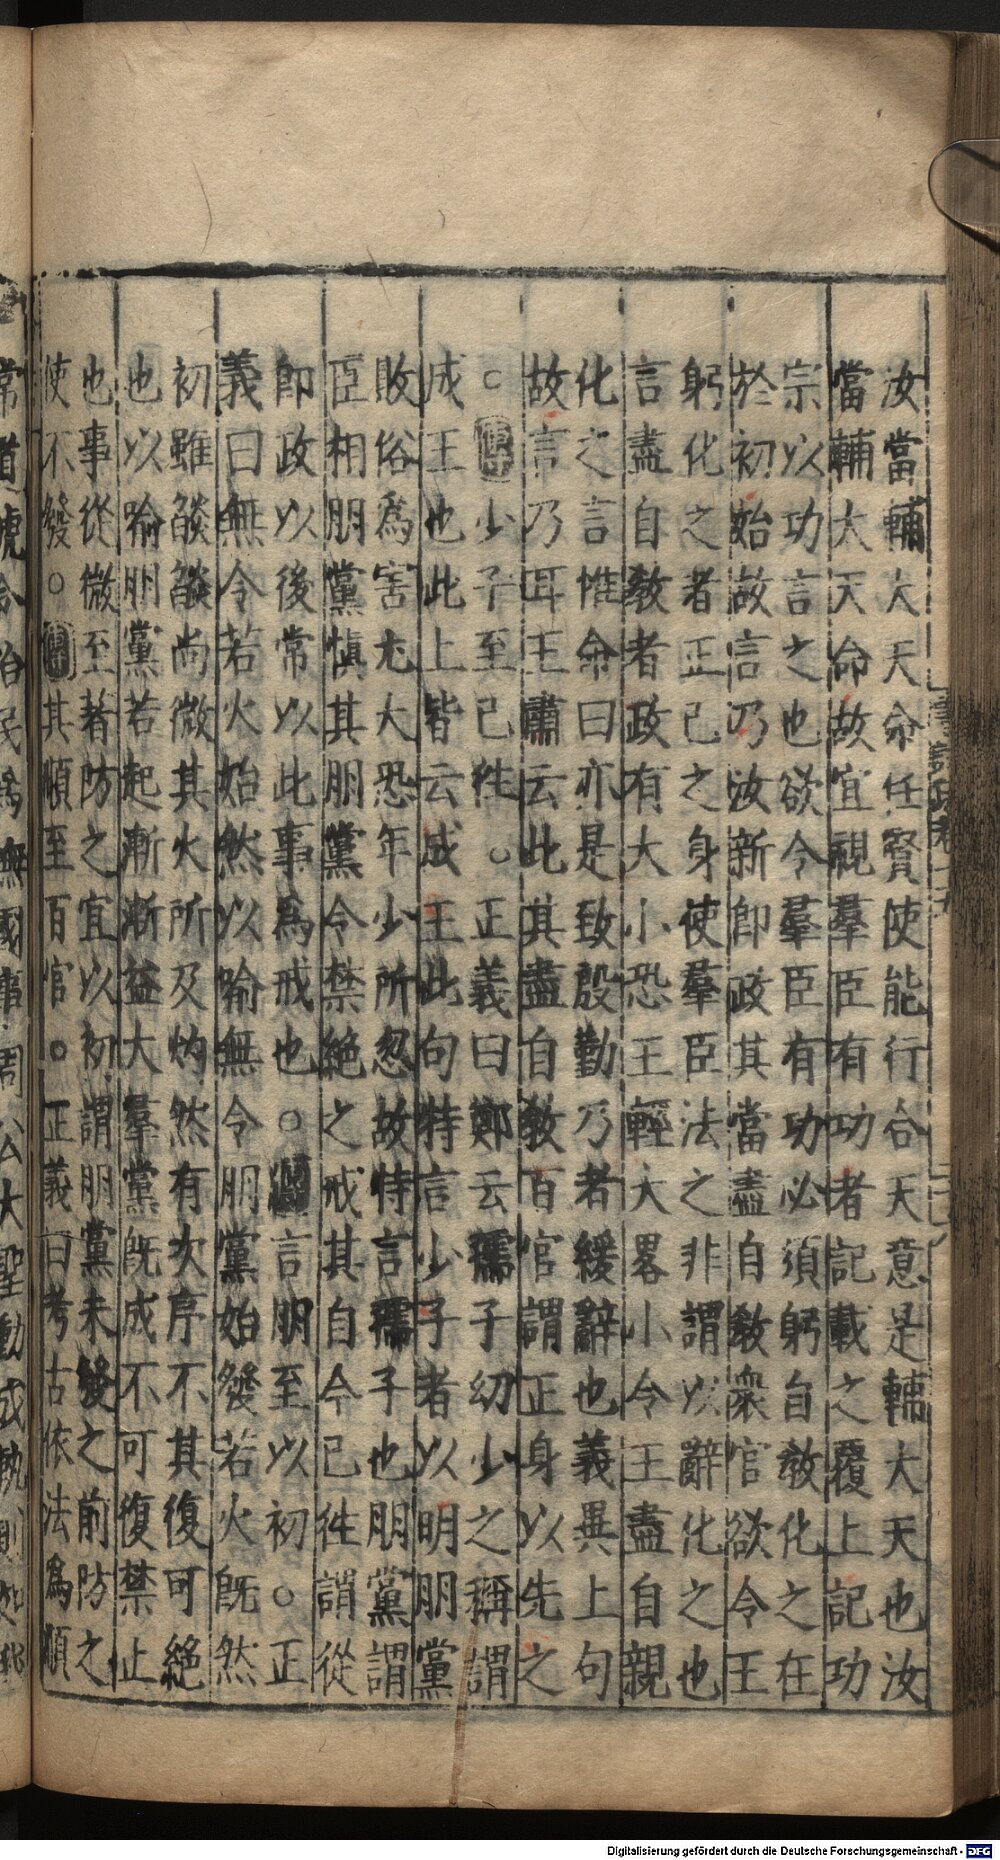 汝當輔大天命任賢使能行合天意是輔大天也汝
當輔大天命故宜視羣臣有功者記載之覆上記功
宗以功言之也欲令羣臣有功必須躬自敎化之在
於初始故言乃汝新卽政其當盡自敎衆官欲令王
躬化之者正己之身使羣臣法之非謂以辭化之也
言盡自敎者政有大小恐王輕大畧小令王盡自親
化之言惟命曰亦是致殷勤乃者緩辭也義異上句
故言乃耳王肅云此其盡自敎百官謂正身以先之
○傳少子至已徃○正義曰鄭云孺子幼少之稱謂
成王也此上皆云成王此句特言少子者以明朋黨
敗俗爲害尤大恐年少所忽故特言孺子也朋黨謂
臣相朋黨愼其朋黨令禁絶之戒其自今已徃謂從
卽政以後常以此事爲戒也○傳言朋至以初○正
義曰無令若火始然以喻無令朋黨始發若火旣然
初雖燄燄尚微其火所及灼然有次序不其復可絶
也以喻朋黨若起漸漸益大羣黨旣成不可復禁止
也事從微至著防之宜以初謂朋黨未發之前防之
使不發○傳其順至百官○正義曰考古依法爲順
常道號令治民爲無國事周公大聖動成軌則如我
Digitalisierung gefördert durch die Deutsche Forschungsgemeinschaft - DFG